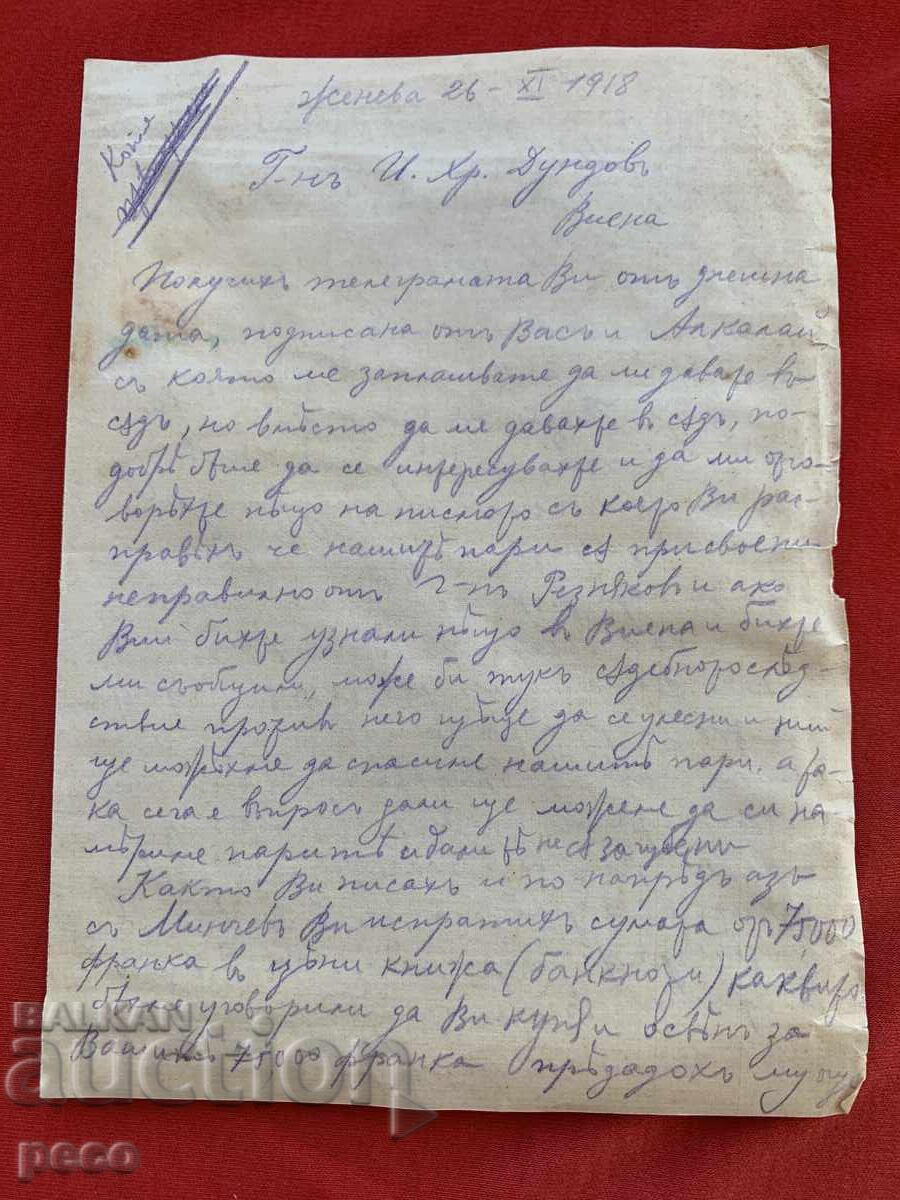 Женева 26 - XI 1918
Копие
Г-нъ И. Хр. Дундовъ
Виена
Получихъ телеграмата Ви отъ днешна
дата, подписана отъ Васъ и Алкалай
съ която ме заплашвате да ме давате въ
сѫдъ, но вмѣсто да ме давахте въ сѫдъ, по-
добрѣ бѣше да се интересувахте и да ми отго-
ворѣхте нѣщо на писмото съ което Ви рас-
правѣхъ че нашитѣ пари сѫ присвоени
неправилно отъ г-нъ Резняковъ и ако
Вий бихте узнали нѣщо въ Виена и бихте
ми съобщили, може би тукъ сѫдебното слѣд-
ствие противъ него щѣше да се улесни и ний
ще можѣхме да спасиме нашитѣ пари, а та-
ка сега е въпросъ дали ще можеме да си на
мѣриме паритѣ и дали тѣ не сѫ загубени
Както Ви писахъ и по напрѣдъ азъ
съ Минчевъ Ви испратихъ сумата отъ 75000
франка въ цѣни книжа (банкноти) каквито
бѣхме уговорили да Ви купѫ и освѣнъ за
Вашитѣ 75000 франка прѣдадохъ му
BALKAN
auction
peco